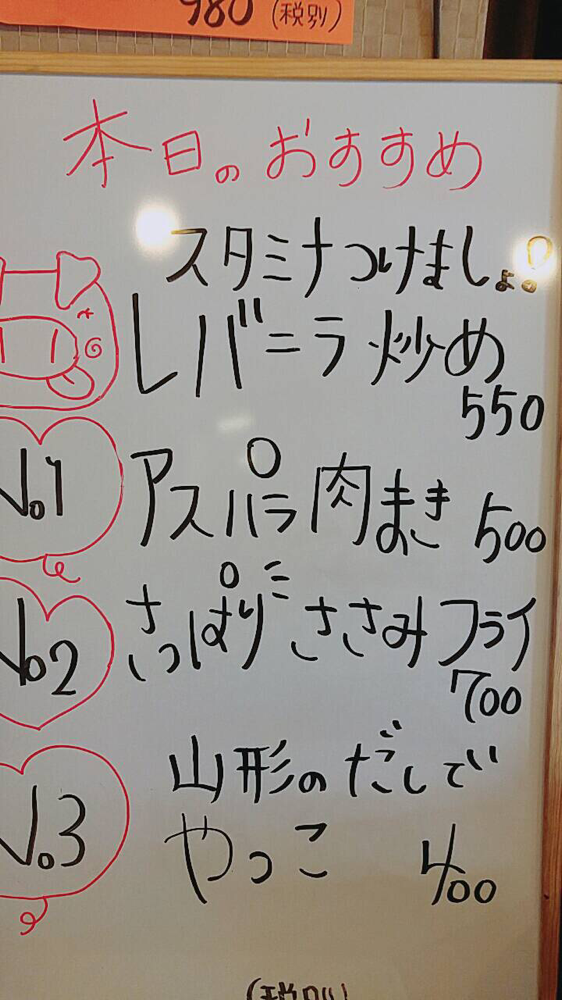 980 (税別)
本日のおすすめ
スタミナつけましょ!
レバニラ炒め
550
No.1 アスパラ肉まき 500
No.2 さっぱりささみフライ
700
山形のだしで
No.3 やっこ 400
(税別)